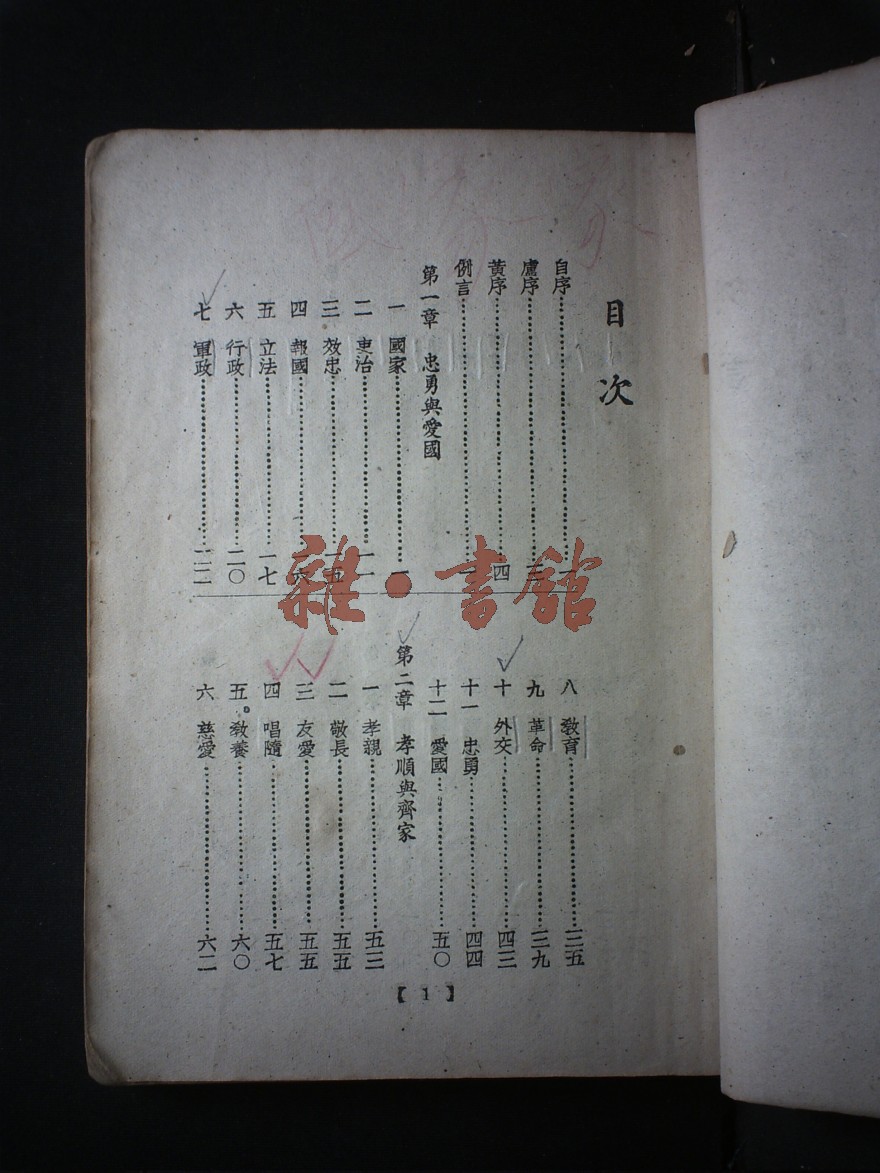 目次
自序………一
盧序………三
黃序………四
例言………一
第一章 忠勇與愛國
一 國家………一
二 吏治………一一
三 效忠………一五
四 報國………一六
五 立法………一七
六 行政………二〇
七 軍政………二二
八 教育………三五
九 革命………三九
十 外交………四三
十一 忠勇………四四
十二 愛國………五〇
第二章 孝順與齊家
一 孝親………五三
二 敬長………五五
三 友愛………五五
四 唱隨………五七
五 教養………六〇
六 慈愛………六二
【1】
雜·書館